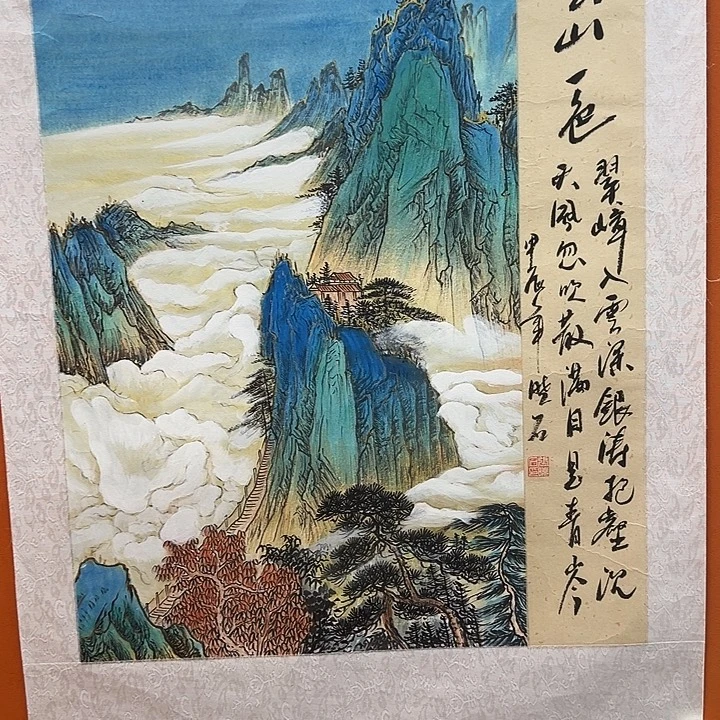 山一色
翠嶂入雲深銀濤抱壑沉
天風忽吹散滿目是青岑
甲辰年曉石